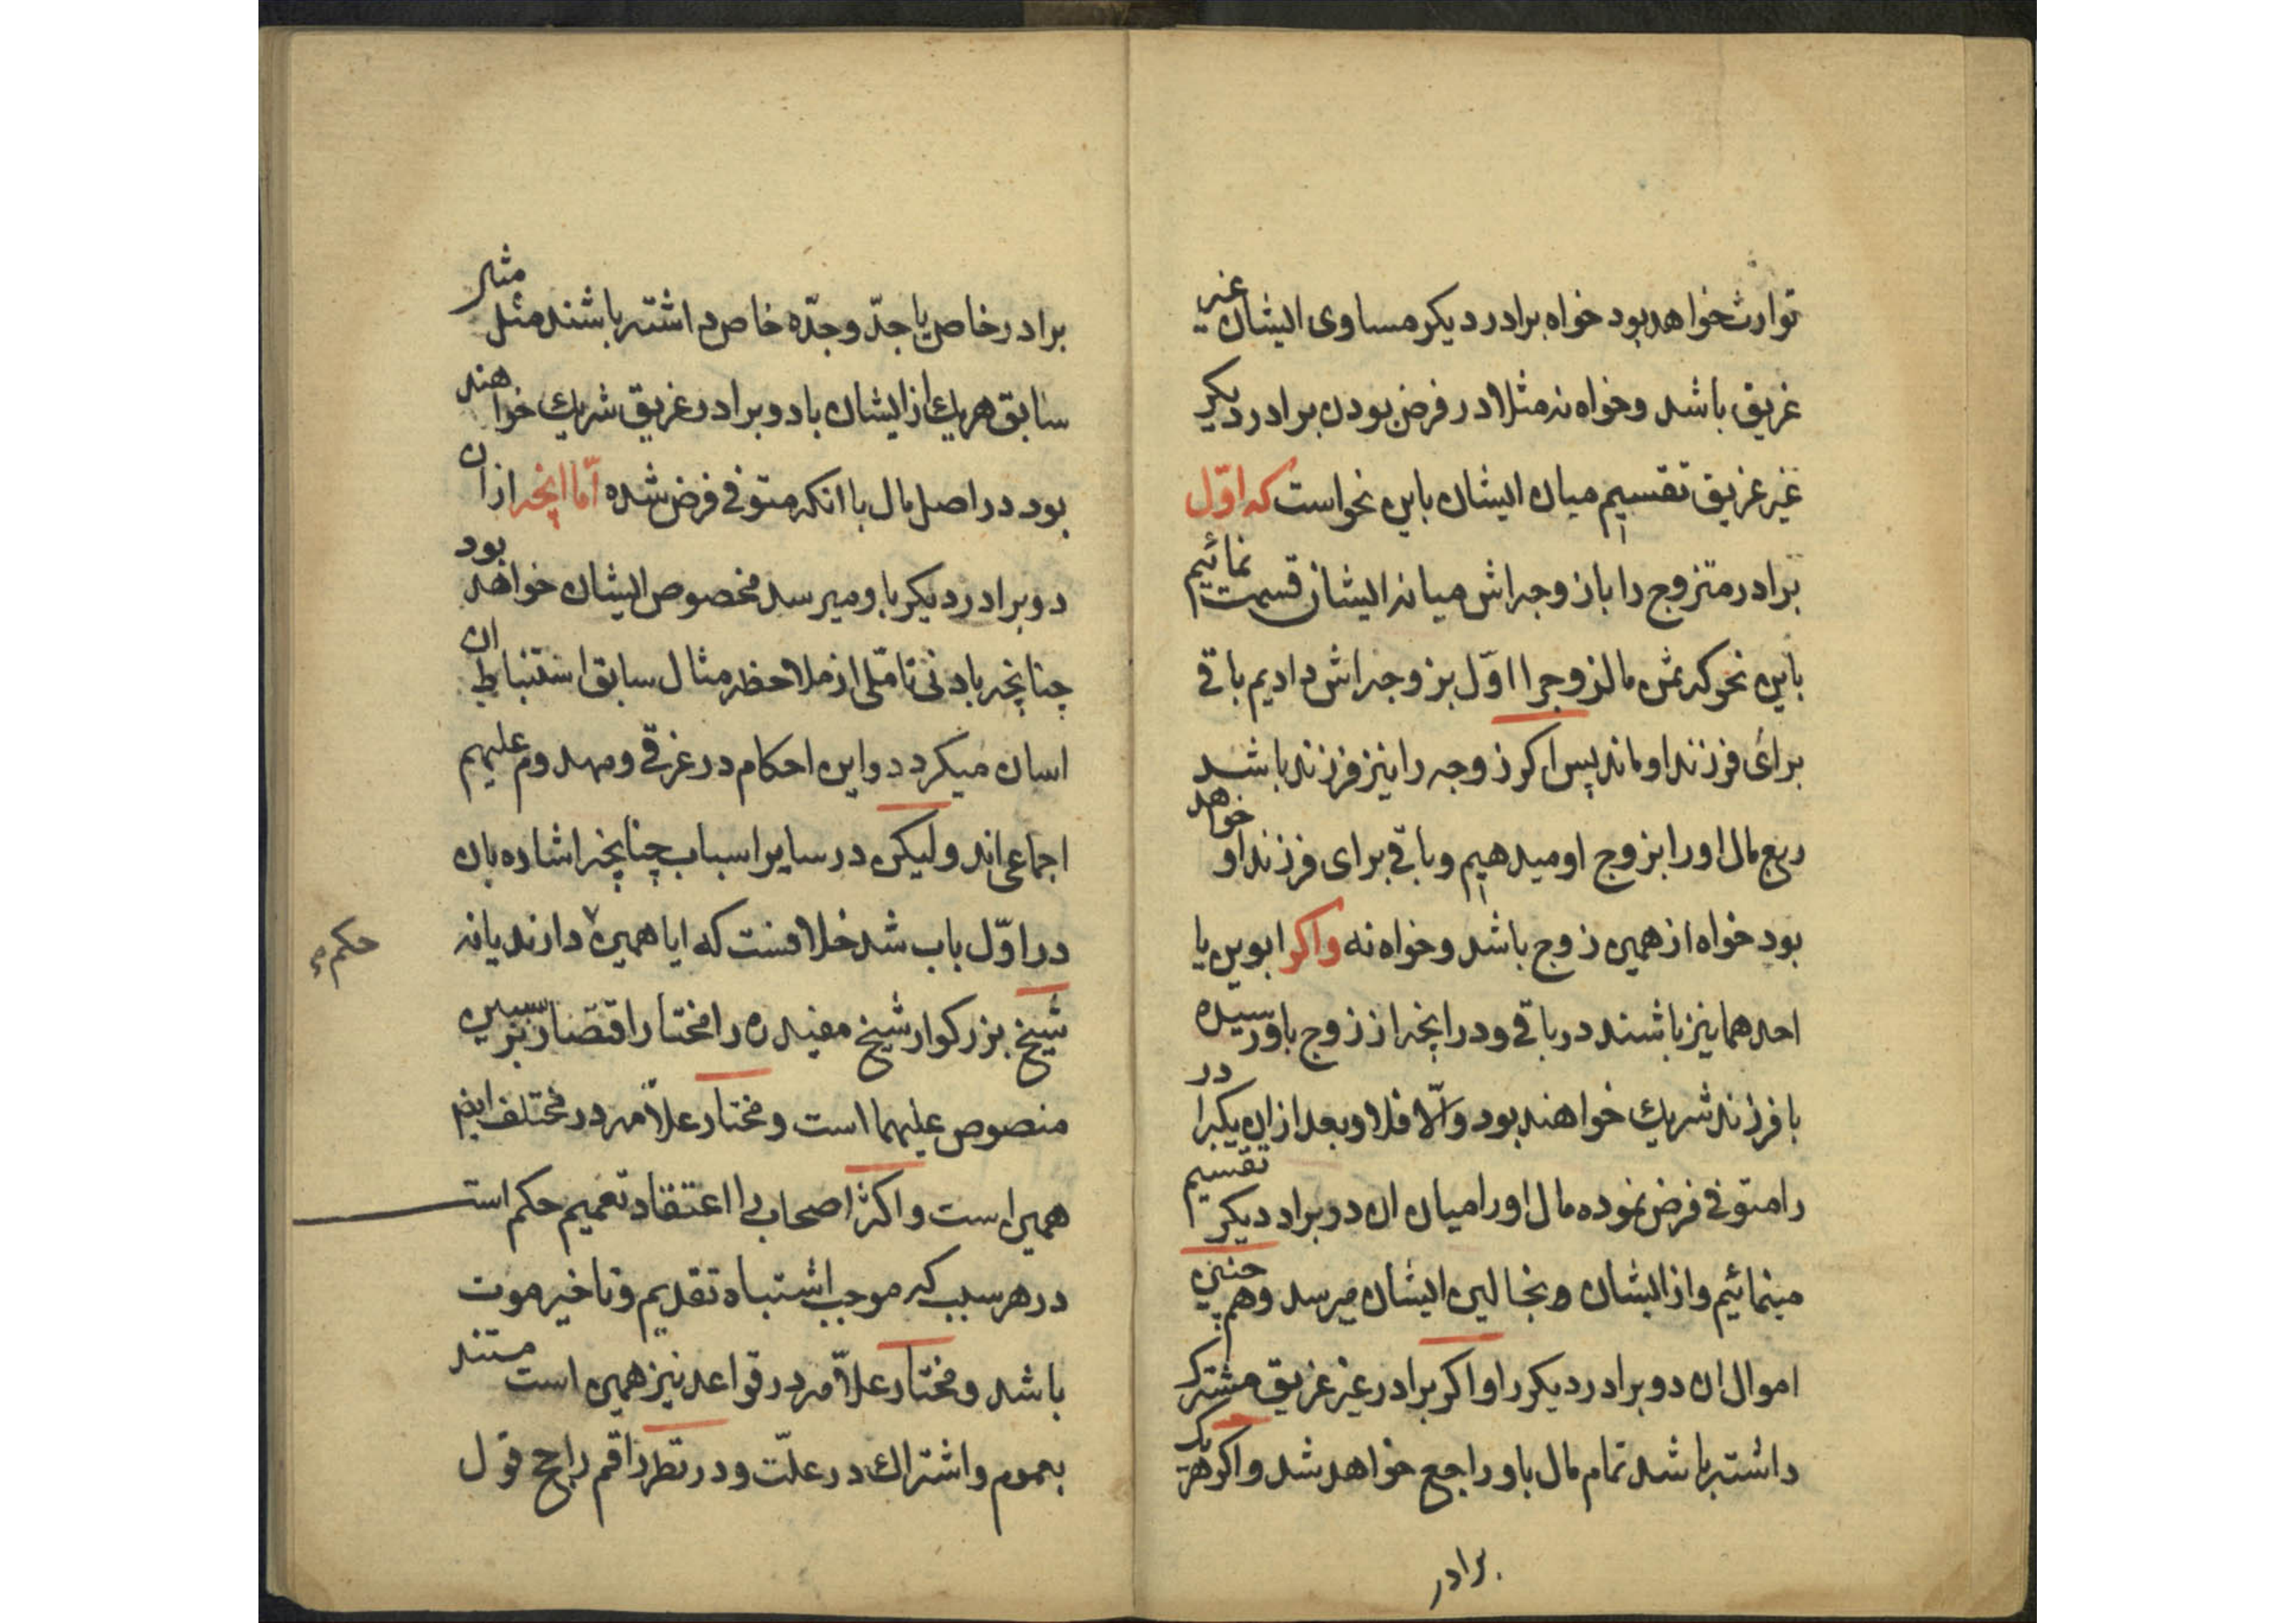 توارث خواهد بود خواه برادر دیکر مساوی ایشان غیر
غریق باشد وخواه نه مثلا در فرض بودن برادر دیکر
غیر غریق تقسیم میان ایشان باین نحواست که اوّل
برادر متزوج را با زوجه اش میانه ایشان قسمت نمائیم
باین نحو که ثمن مال زوج را اوّل بزوجه اش دادیم باقی
برای فرزند او ماند پس اکر زوجه را نیز فرزند باشد
ربع مال او را بزوج او میدهیم وباقی برای فرزند او خواهد
بود خواه از همین زوج باشد وخواه نه واکر ابوین یا
احدهما نیز باشند در باقی ودر انچه از زوج باو رسیده
با فرزند شریك خواهند بود والّا فلا وبعد از این یکبرادر
را متوفی فرض نموده مال او را میان ان دو براد دیکر تقسیم
مینمائیم واز ایشان ایشان میرسد وهم چنین
اموال ان دو برادر دیکر را واکر برادر غیر غریق مشترک
داشته باشد تمام مال باو راجع خواهد شد واکر هر یک
برادر
برادر خاص یا جدّ وجدّه خاص داشته باشند مثل مثل
سابق هریك از ایشان با دو برادر غریق شریك خواهند
بود در اصل مال با انکه متوفی فرض شده امّا انچه از ان
دو برادر دیکر باو میرسد مخصوص ایشان خواهد بود
چنانچه بادنی تامّلی از ملاحظه مثال سابق استنباط ان
اسان میکردد واین احکام در غرقی ومهدوم علیهم
اجماعی اند ولیکن در سایر اسباب چنانچه اشاره بان
در اوّل باب شد خلافست که ایا همین دارند یا نه
حکم
شیخ بزرکوار شیخ مفید ره را مختار اقتصار بر سببین
منصوص علیهما است ومختار علاّمه در مختلف ایضم
همین است واکثر اصحاب را اعتقاد تعمیم حکم است
در هر سبب که موجب اشتباه تقدیم وتاخیر موت
باشد ومختار علاّمه در قواعد نیز همین است مستند
بعموم واشتراك در علّت ودر نظر راقم راجح قول